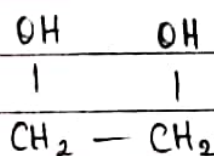 OH OH
| |
CH2 — CH2